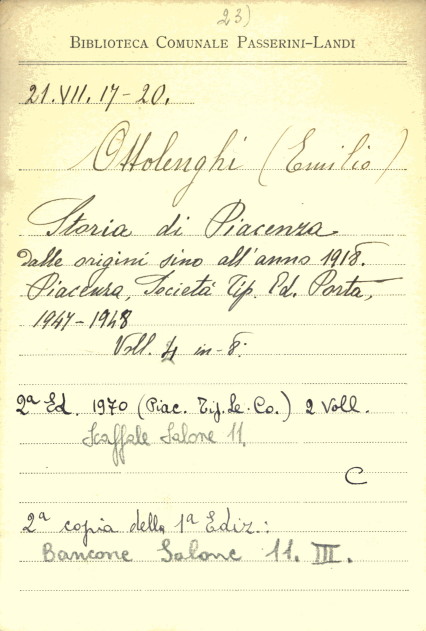 23)
BIBLIOTECA COMUNALE PASSERINI-LANDI
21.VII.17-20.
Ottolenghi (Emilio)
Storia di Piacenza
dalle origini sino all'anno 1918.
Piacenza, Società Tip. Ed. Porta,
1947-1948
Voll. 4 in-8.
2ª Ed. 1970 (Piac. Tip.Le.Co.) 2 Voll.
Scaffale Salone 11.
C
2ª copia della 1ª Ediz.:
Bancone Salone 11. III.